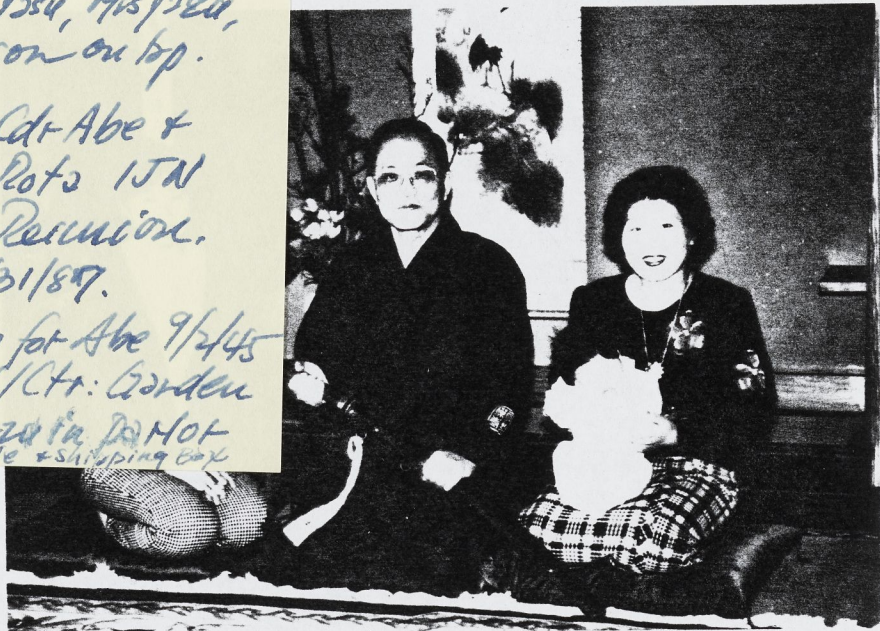 on bp.
Cdr Abe &
Rota IJN
Reunion.
31/87.
for Abe 9/2/45
/Ctr: Garden
in Parlor
& shipping Box